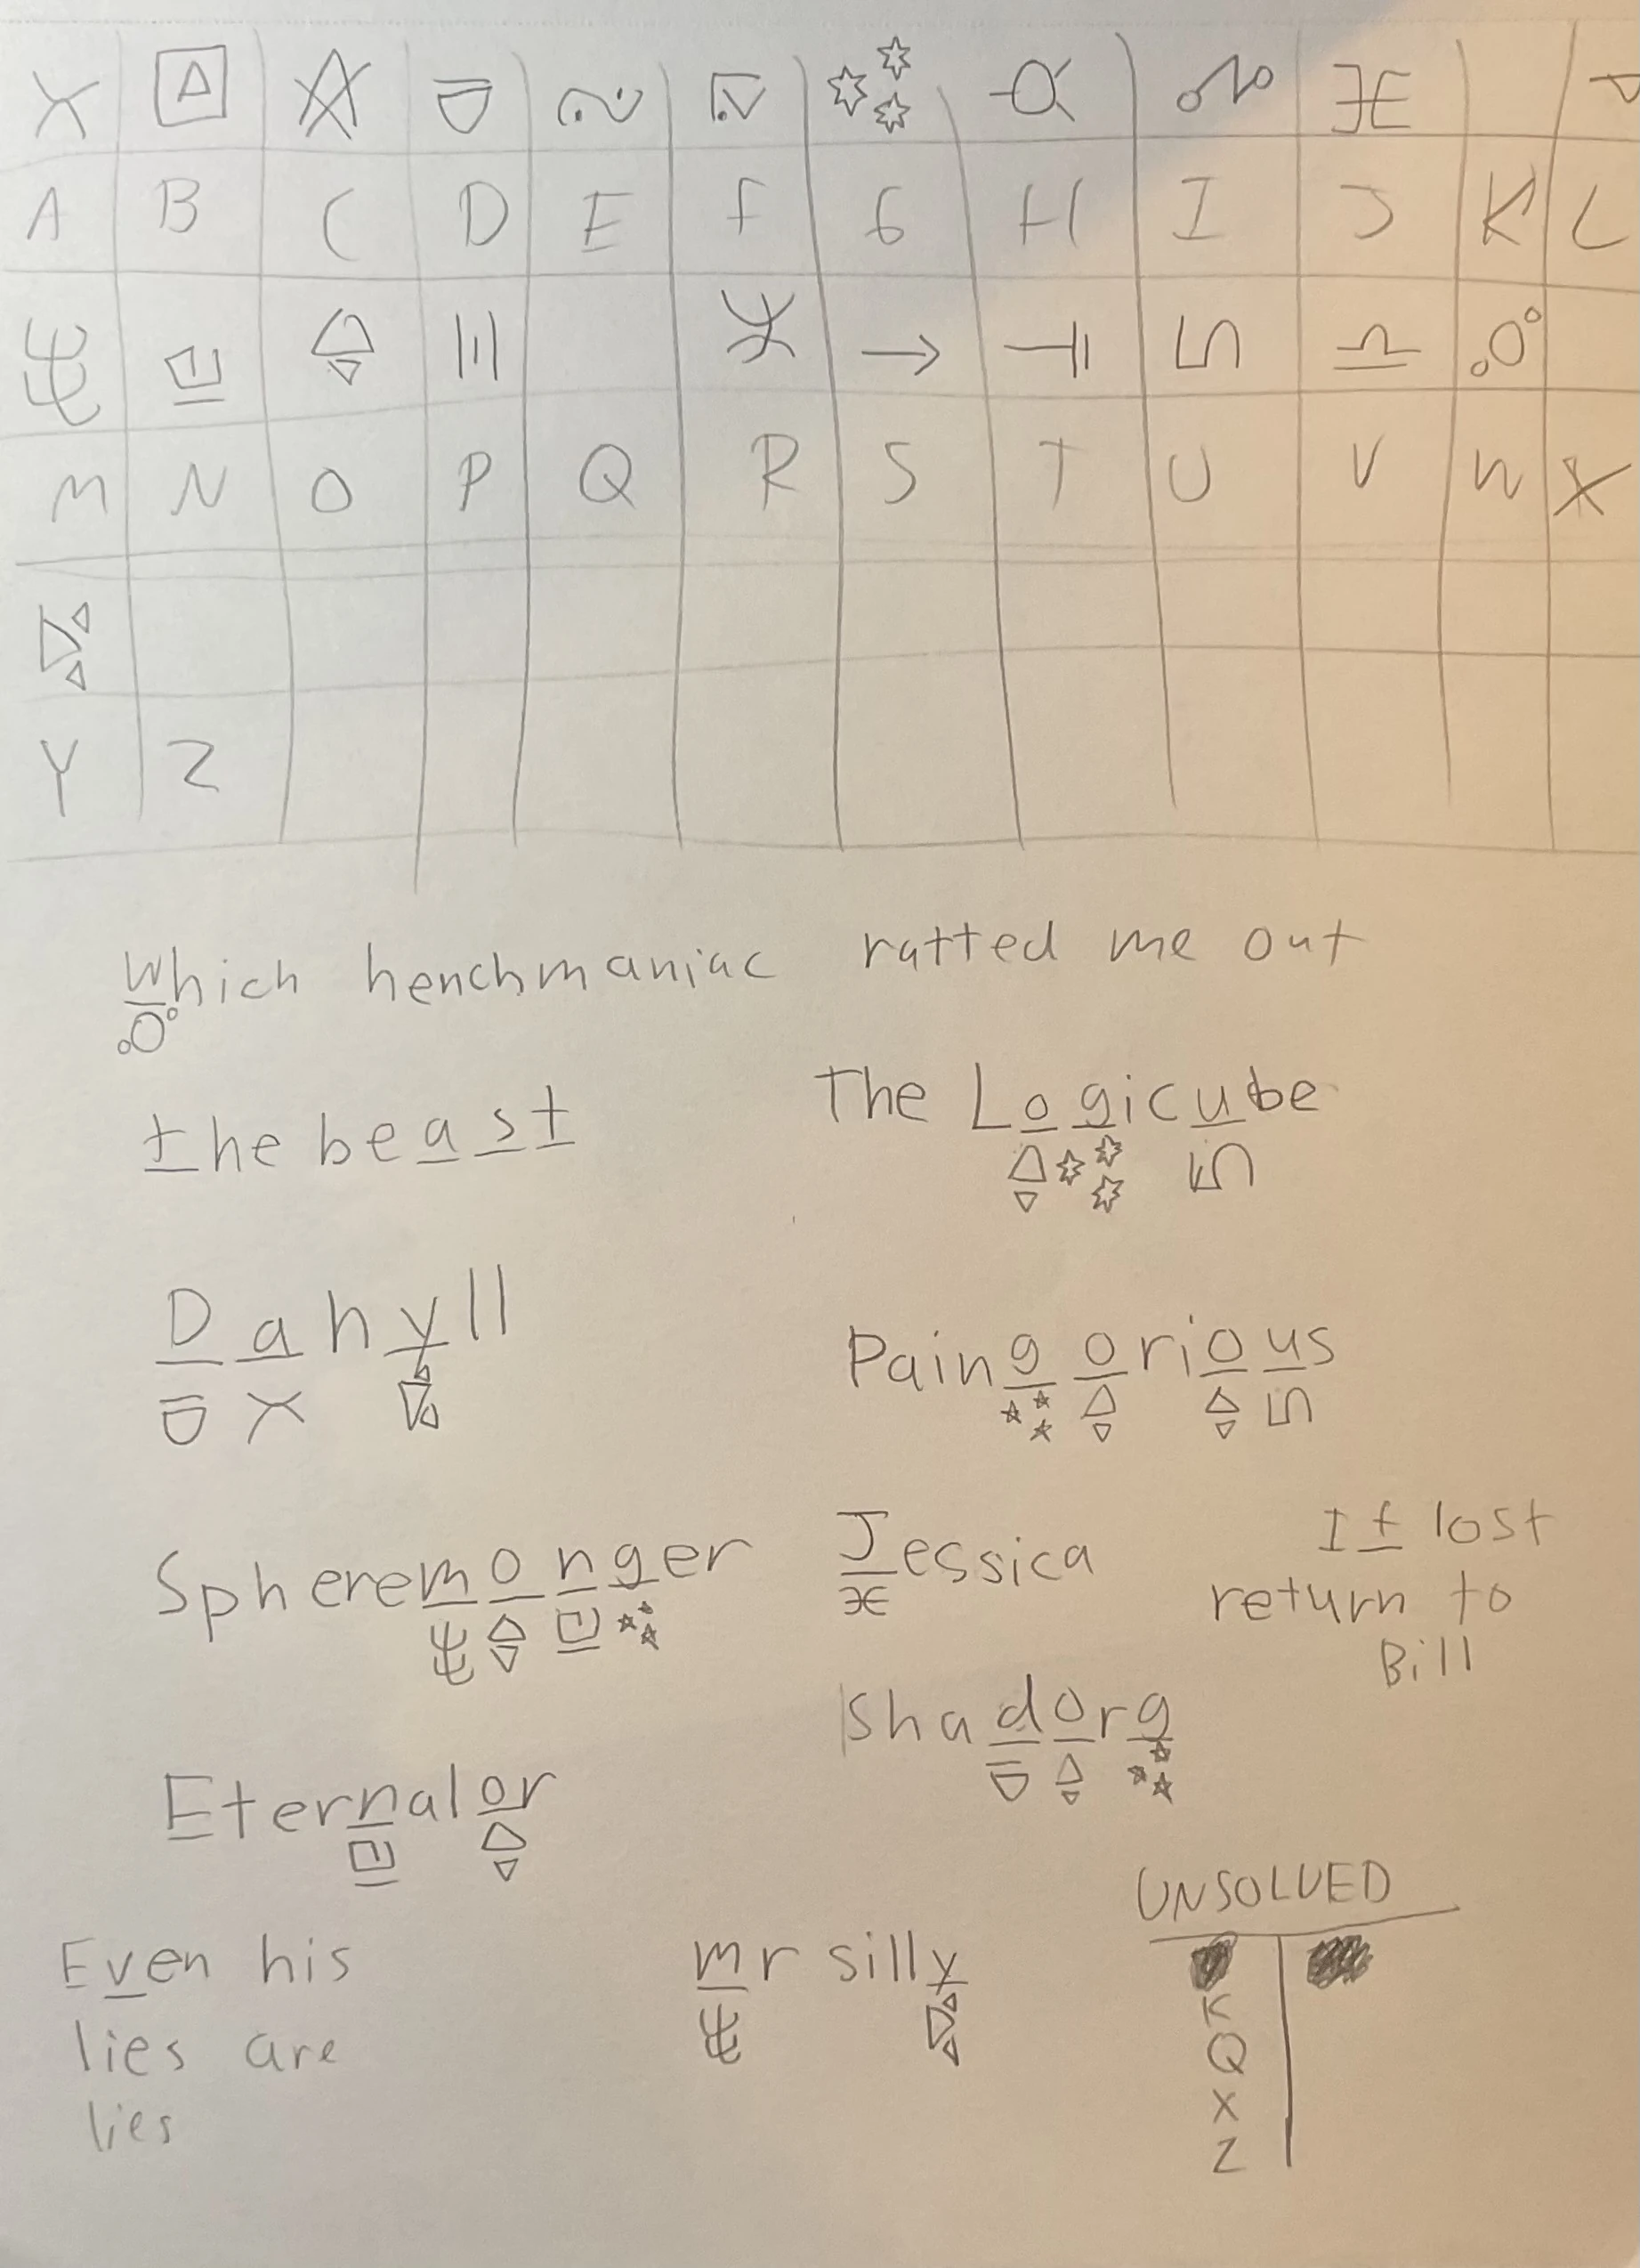 A B C D E F G H I J K L
M N O P Q R S T U V W X
Y Z
Which henchmaniac ratted me out
the beast
The Logicube
Dahyll
Paingorious
Spheremonger
Jessica
If lost
return to
Bill
Shadorg
Eternalor
Even his
lies are
lies
mr silly
UNSOLVED
K
Q
X
Z